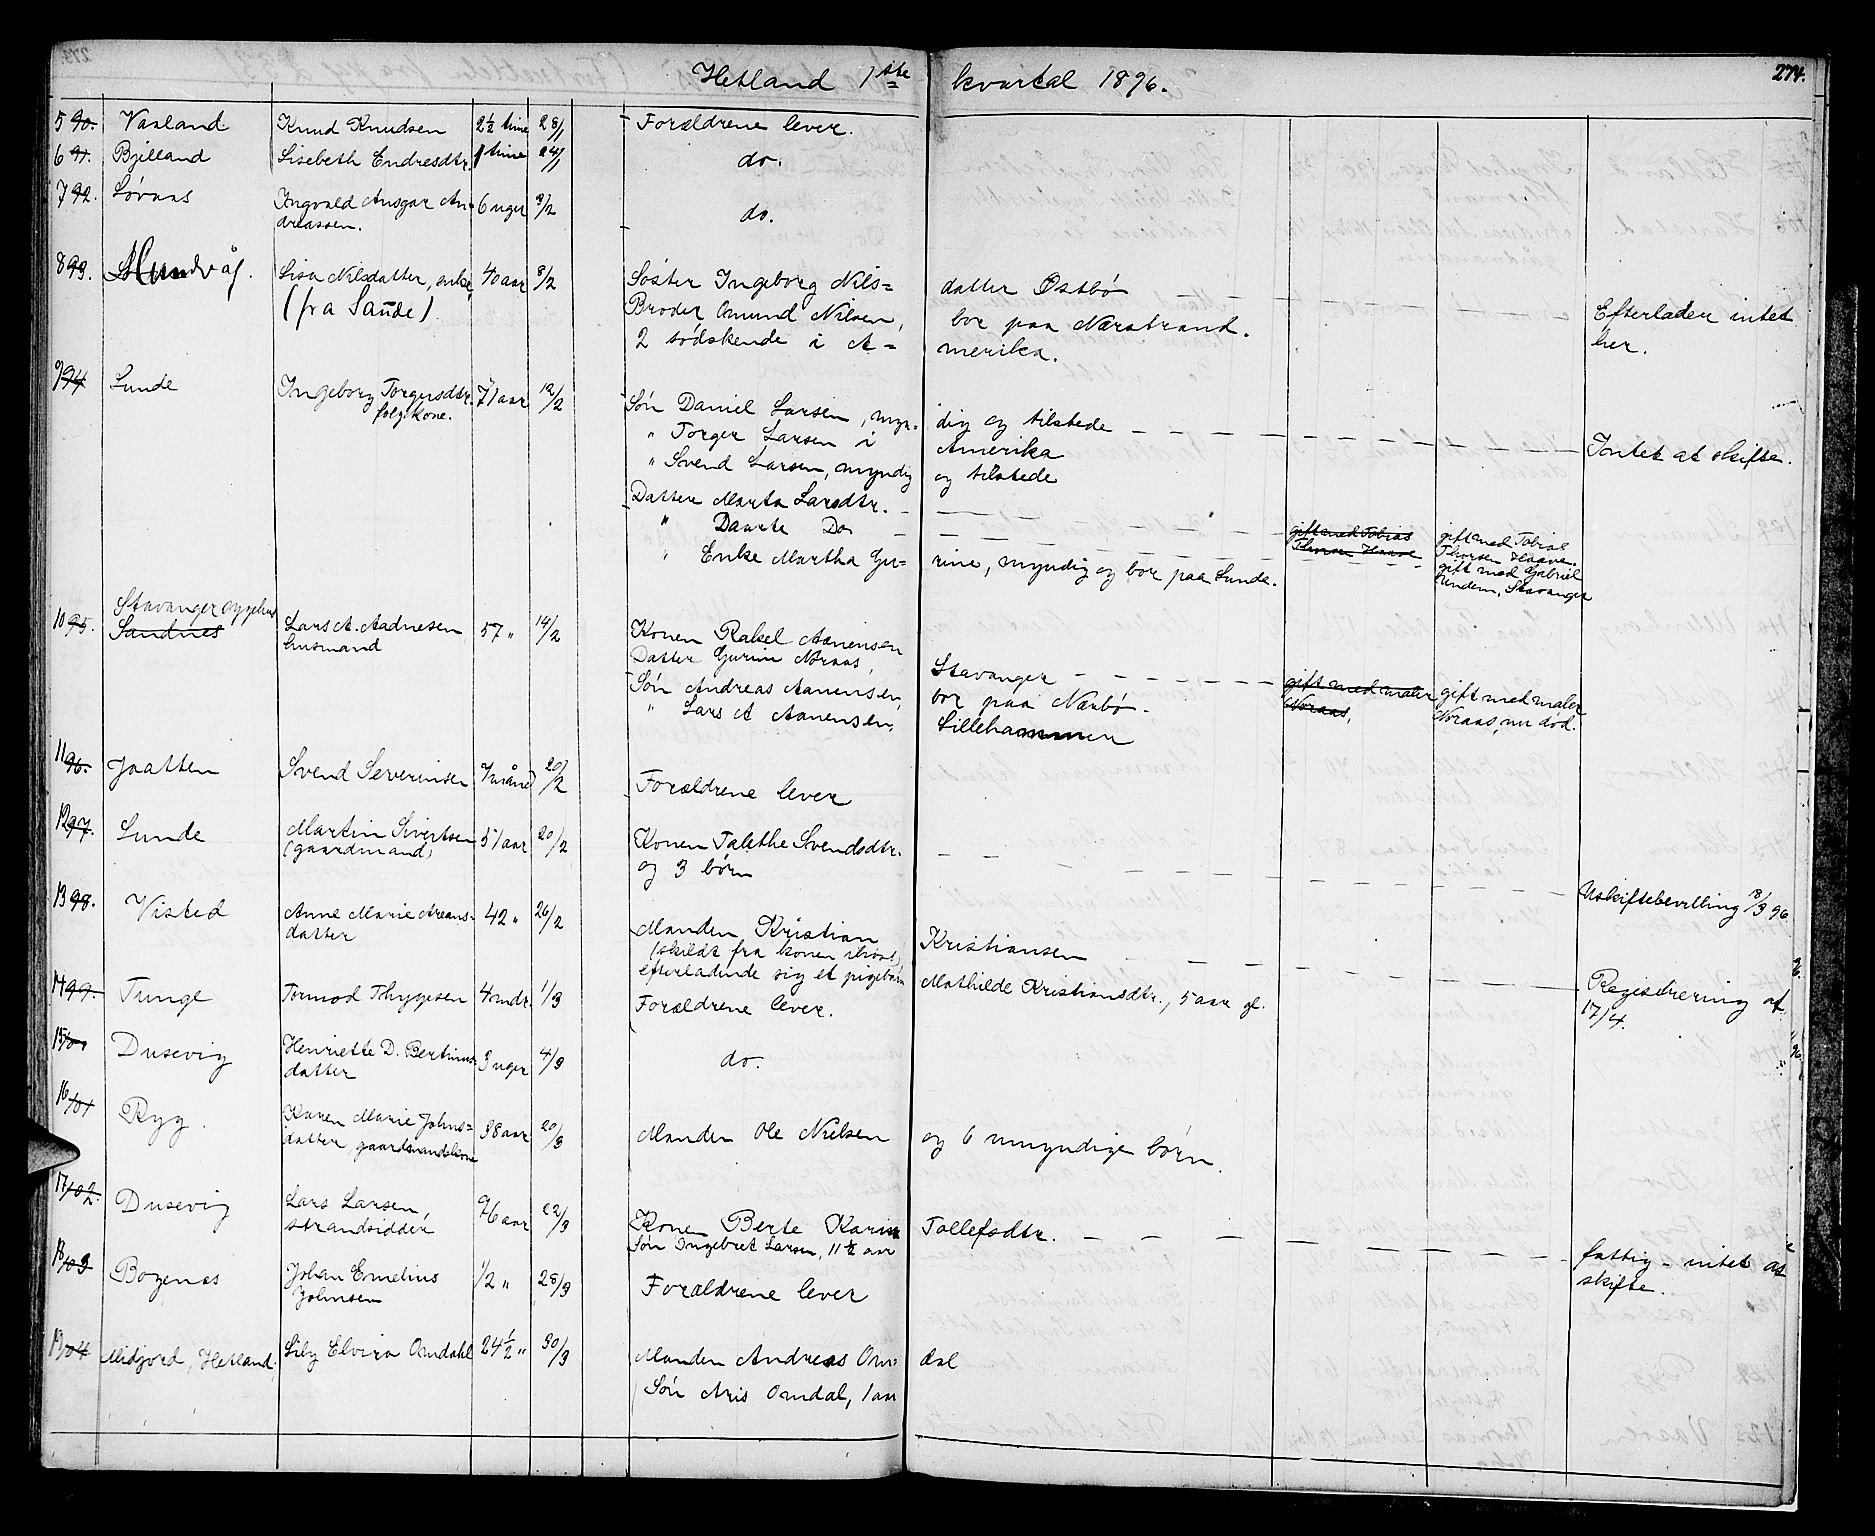 Hetland 1ste kvartal 1896.
274.
5 90. Vasland Knud Knudsen 2½ time 28/1 Forældrene lever.
6 91. Bjelland Lisebeth Endresdtr. 1 time 24/1 do.
7 92. Søraas Ingvald Ansgar An=
dreassen. 6 uger 3/2 do.
8 93. Hundvåg. Lisa Nilsdatter, enke 40 aar 8/2 Søster Ingeborg Nils= datter Østbø
(fra Saude) Broder Omund Nilsen, bor paa Nærstrand. Efterlader intet
2 södskende i A= merika. her.
9 94 Lunde Ingeborg Torgersdtr. 71 aar 12/2 Søn Daniel Larsen, myn= dig og tilstede
følgkone. " Torger Larsen i Amerika Intet at skifte.
" Svend Larsen, myndig og tilstede
Datter Marta Larsdtr.
" Daarte Do gift med Tobias gift med Tobias
Thorsen Haave Thorsen Haave.
" Enke Martha Gu= rine, myndig og bor paa Lunde. gift med Gabriel
Undem, Stavanger
Stavanger sygehus
10 95. Sandnes Lars A. Aadnesen 57 " 14/2 Konen Rakel Aanensen
husmand Datter Gurine Noraas, Stavanger gift med maler gift med maler
Søn Andreas Aanensen, bor paa Nærbø. Noraas, Noraas, nu död.
" Lars A Aanensen, Lillehammer
11 96. Jaatten Svend Severinsen 7 måned 20/2 Forældrene lever
12 97. Lunde Martin Sivertsen 51 aar 20/2 Konen Talethe Svendsdtr.
(gaardmand) og 3 børn Uskiftebevilling 18/3 96.
13 98. Visted Anne Marie Areans= 42 " 26/2 Manden Kristian Kristiansen
datter (skildt fra konen
efterladende sig et pigebarn Mathilde Kristiansdtr., 5 aar gl. Registrering af
17/4.
14 99. Tunge Tormod Thygesen 4 mdr. 1/3 Forældrene lever.
15 100 Dusevig Henriette D. Bertinus= 3 uger 4/3 do.
datter
16 101 Ryg. Karen Marie Johns= 38 aar 20/3 Manden Ole Nielsen og 6 umyndige børn.
datter, gaardmandskone
17 102. Dusevig Lars Larsen, 76 aar 22/3 Kone Berte Karine Tollefsdtr.
strandsidder Søn Ingebret Larsen, 11½ aar fattig - intet at
skifte.
18 103 Bogenas Johan Ernelius 1/2 " 28/3 Forældrene lever
Johnsen
19 104 Midjord, Hetland. Lily Elvira Omdahl 24½ " 30/3 Manden Andreas Om= dal
Søn Aris Omdal, 1 aar